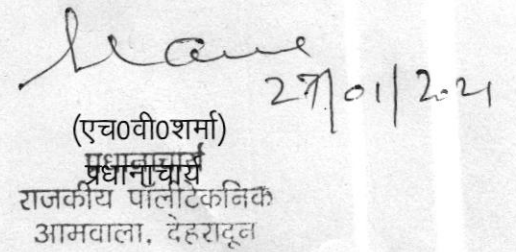 27/01/2021
(एच0वी0शर्मा)
प्रधानाचार्य
प्रधानाचार्य
राजकीय पॉलीटेकनिक
आमवाला, देहरादून